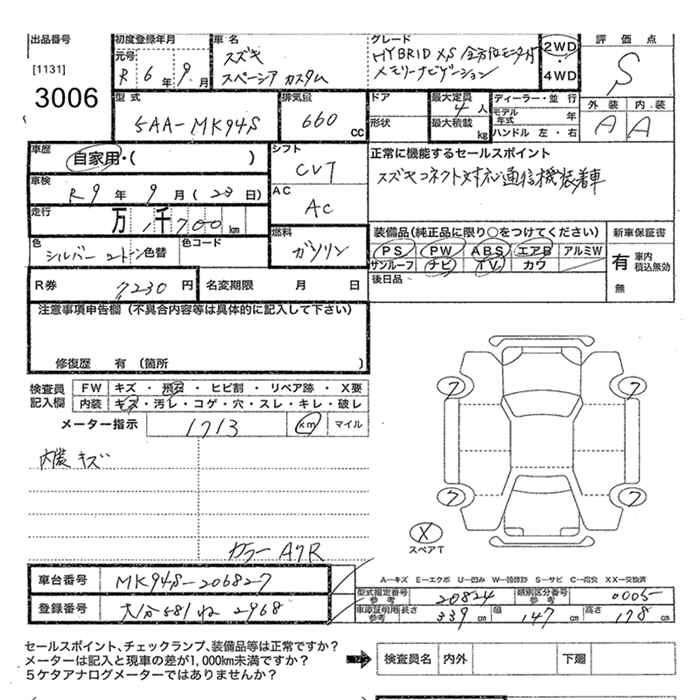 出品番号 初度登録年月 車名 グレード 評価点
[1131] 元号 R 6年 9月 スズキ HYBRID XS 全方位モニター付 2WD・ S
3006 スペーシア カスタム メモリーナビゲーション 4WD
型式 排気量 ドア 最大定員 4人 ディーラー・並行 外装 内装
5AA-MK94S 660 cc 形状 最大積載 kg モデル年式 年 A A
ハンドル 左・右
車歴 自家用・( ) シフト CVT 正常に機能するセールスポイント
車検 R9年 9月(23日) AC スズキコネクト対応通信機装着車
走行 万 1千700km AC 装備品(純正品に限り○をつけてください) 新車保証書
色 シルバー 2トーン 色替 色コード 燃料 ガソリン PS PW ABS エアB アルミW 有 車内積込無効
サンルーフ ナビ TV カワ
R券 7230円 名変期限 月 日 後日品 無
注意事項申告欄(不具合内容等は具体的に記入して下さい)
修復歴 有(箇所 )
検査員 FW キズ・飛石・ヒビ割・リペア跡・X要
記入欄 内装 キズ・汚レ・コゲ・穴・スレ・キレ・破レ
メーター指示 1713 km マイル
7 7
内装 キズ
7 7
X
スペアT
カラー A7R
A―キズ E―エクボ U―凹み W―補修跡 S―サビ C―腐食 XX―交換済
車台番号 MK94S-206827
型式指定番号参考 20824 類別区分番号参考 0005
登録番号 大分581ね2968
車庫証明用参考 長さ 339cm 幅 147cm 高さ 178cm
セールスポイント、チェックランプ、装備品等は正常ですか?
メーターは記入と現車の差が1,000km未満ですか? 検査員名 内外 下廻
5ケタアナログメーターではありませんか?